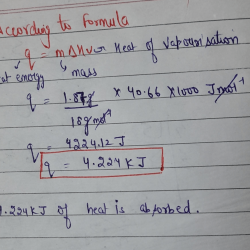 According to Formula
q = mΔHv → Heat of vapourisation
at energy mass
q = 1.87g × 40.66 × 1000 J mol⁻¹
18g mol⁻¹
q = 4224.12 J
q = 4.224 KJ
4.224 KJ of heat is absorbed.